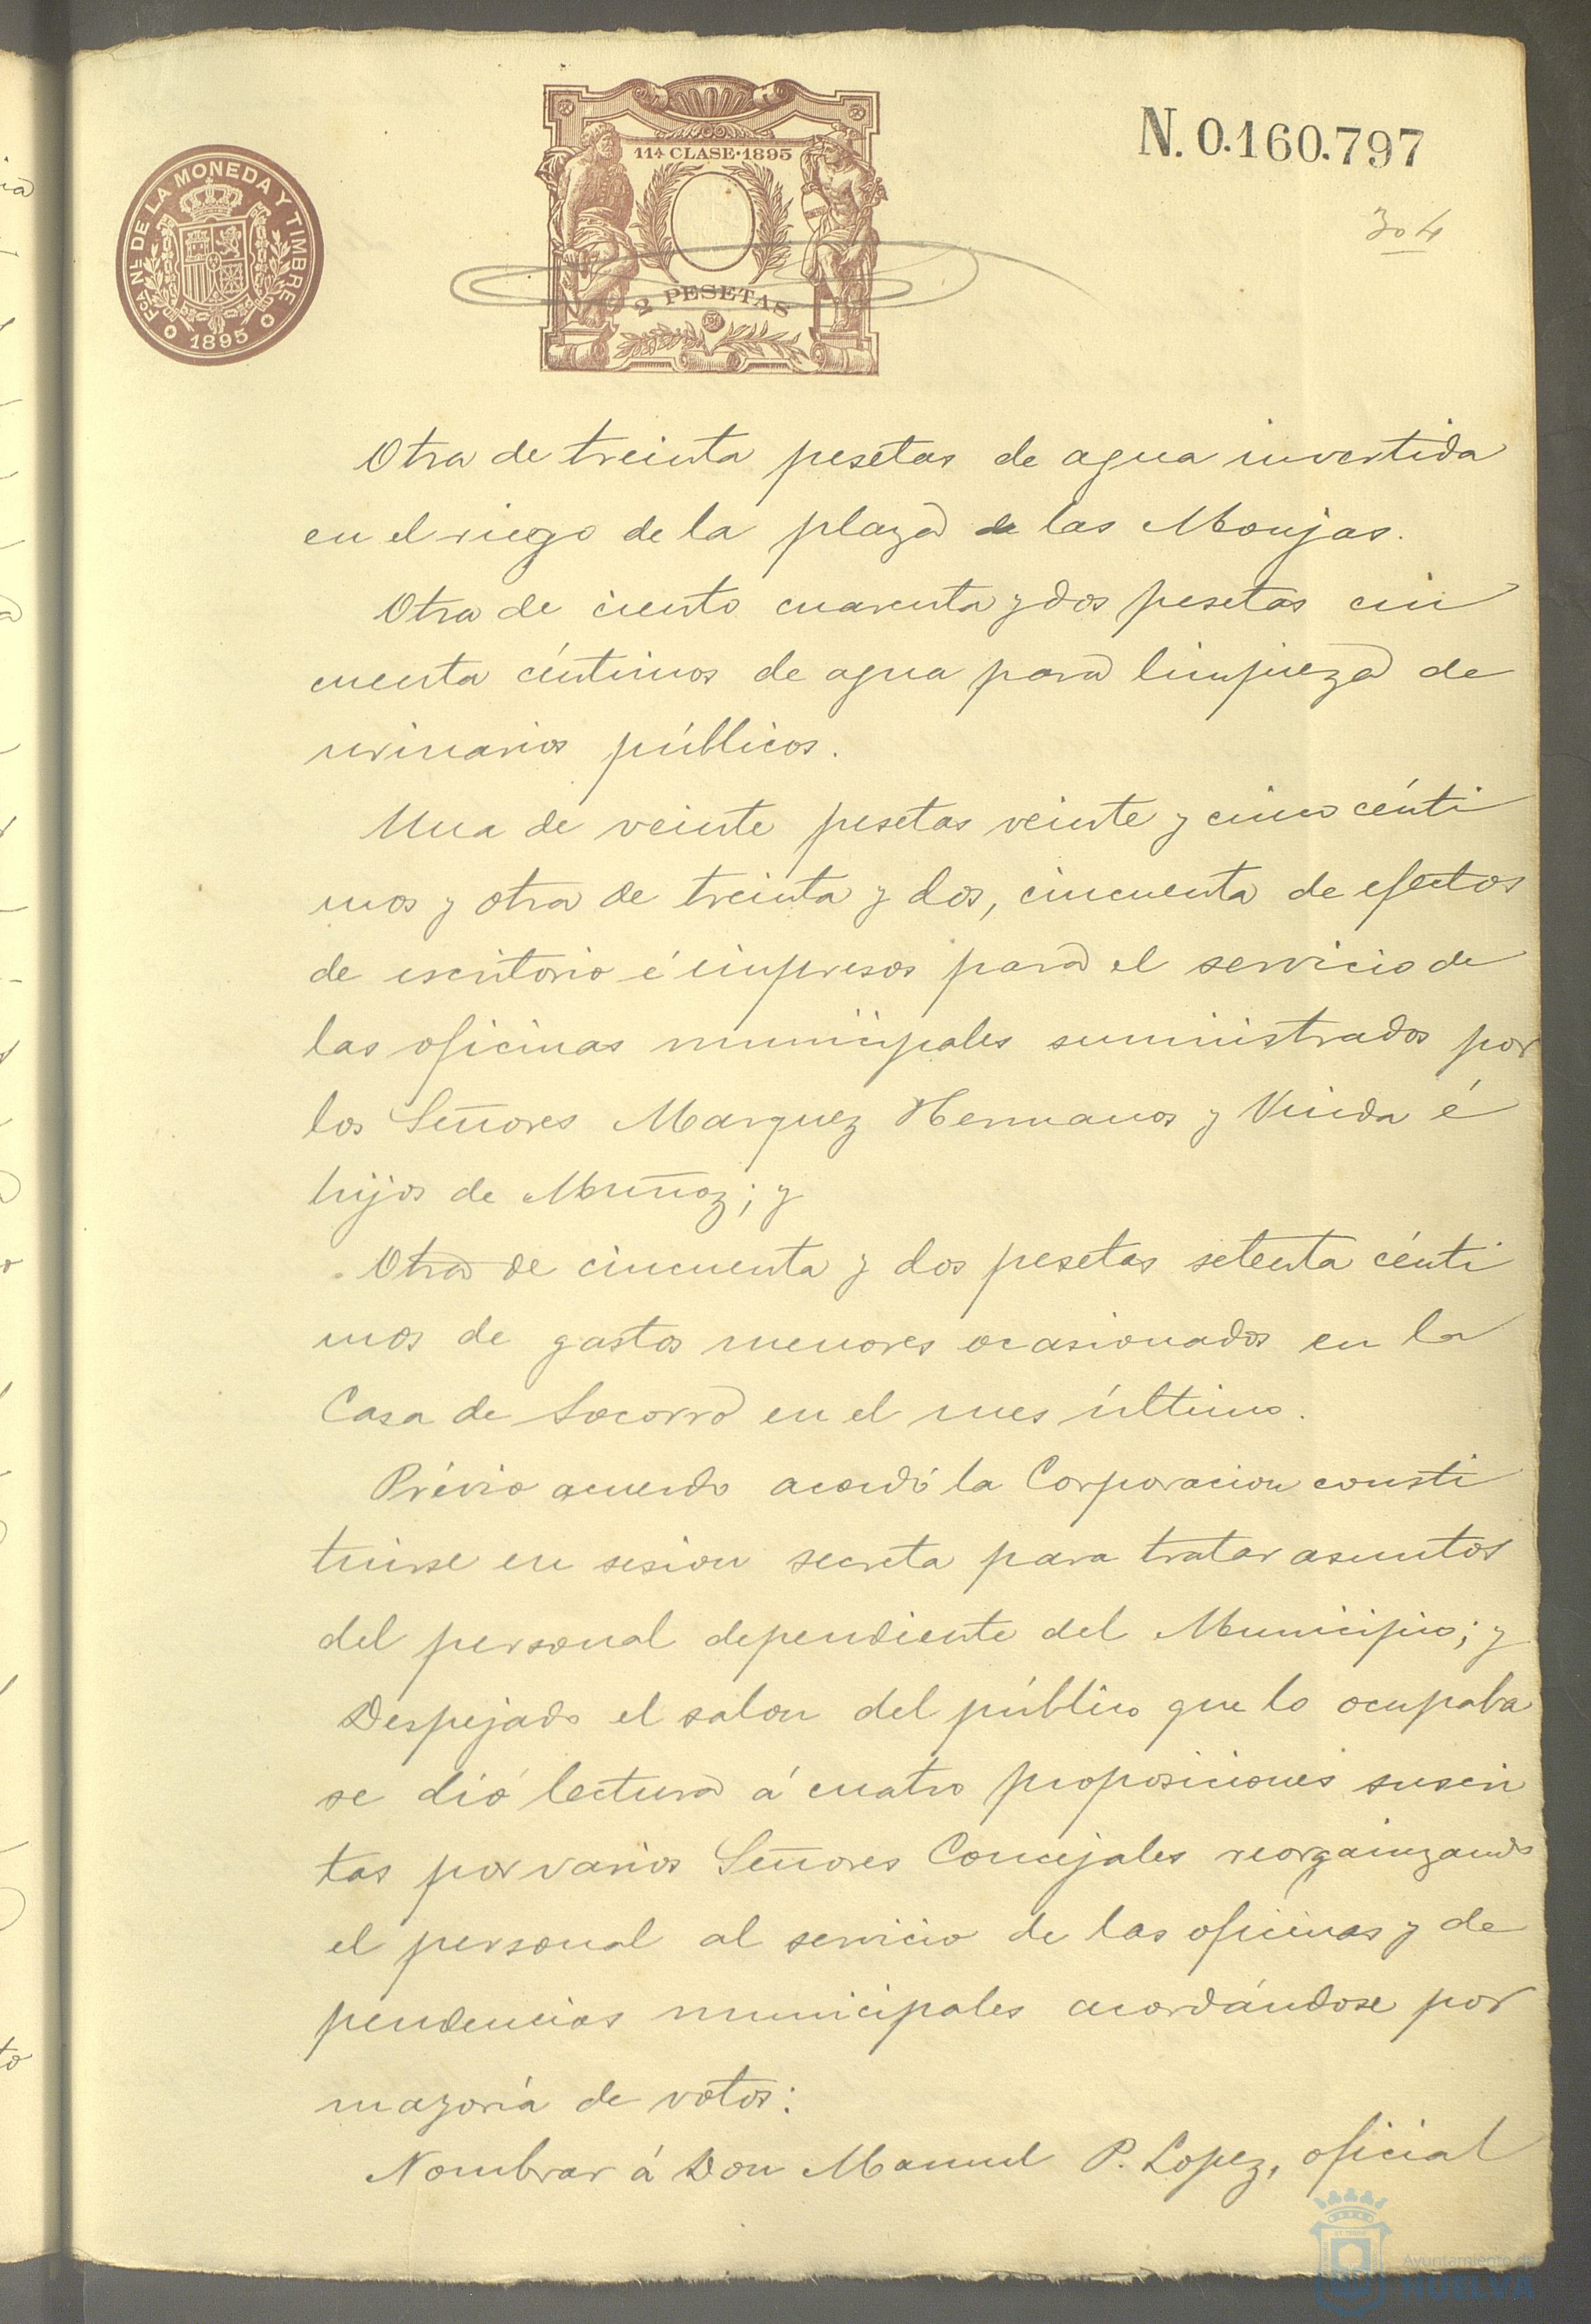 FCA. NL. DE LA MONEDA Y TIMBRE
1895
11ª CLASE·1895
2 PESETAS
N. 0.160.797
304
Otra de treinta pesetas de agua invertida
en el riego de la plaza de las Monjas.
Otra de ciento cuarenta y dos pesetas cin
cuenta céntimos de agua para limpieza de
urinarios públicos.
Una de veinte pesetas veinte y cinco cénti
mos y otra de treinta y dos, cincuenta de efectos
de escritorio é impresos para el servicio de
las oficinas municipales suministrados por
los Señores Marquez Hermanos y Viuda é
hijos de Muñoz; y
Otra de cincuenta y dos pesetas setenta cénti
mos de gastos menores ocasionados en la
Casa de Socorro en el mes último.
Prévio acuerdo acordó la Corporacion consti
tuirse en sesion secreta para tratar asuntos
del personal dependiente del Municipio; y
Despejado el salon del público que lo ocupaba
se dió lectura á cuatro proposiciones suscri
tas por varios Señores Concejales reorganizando
el personal al servicio de las oficinas y de
pendencias municipales acordándose por
mayoría de votos:
Nombrar á Don Manuel P. Lopez, oficial
Ayuntamiento de
HUELVA